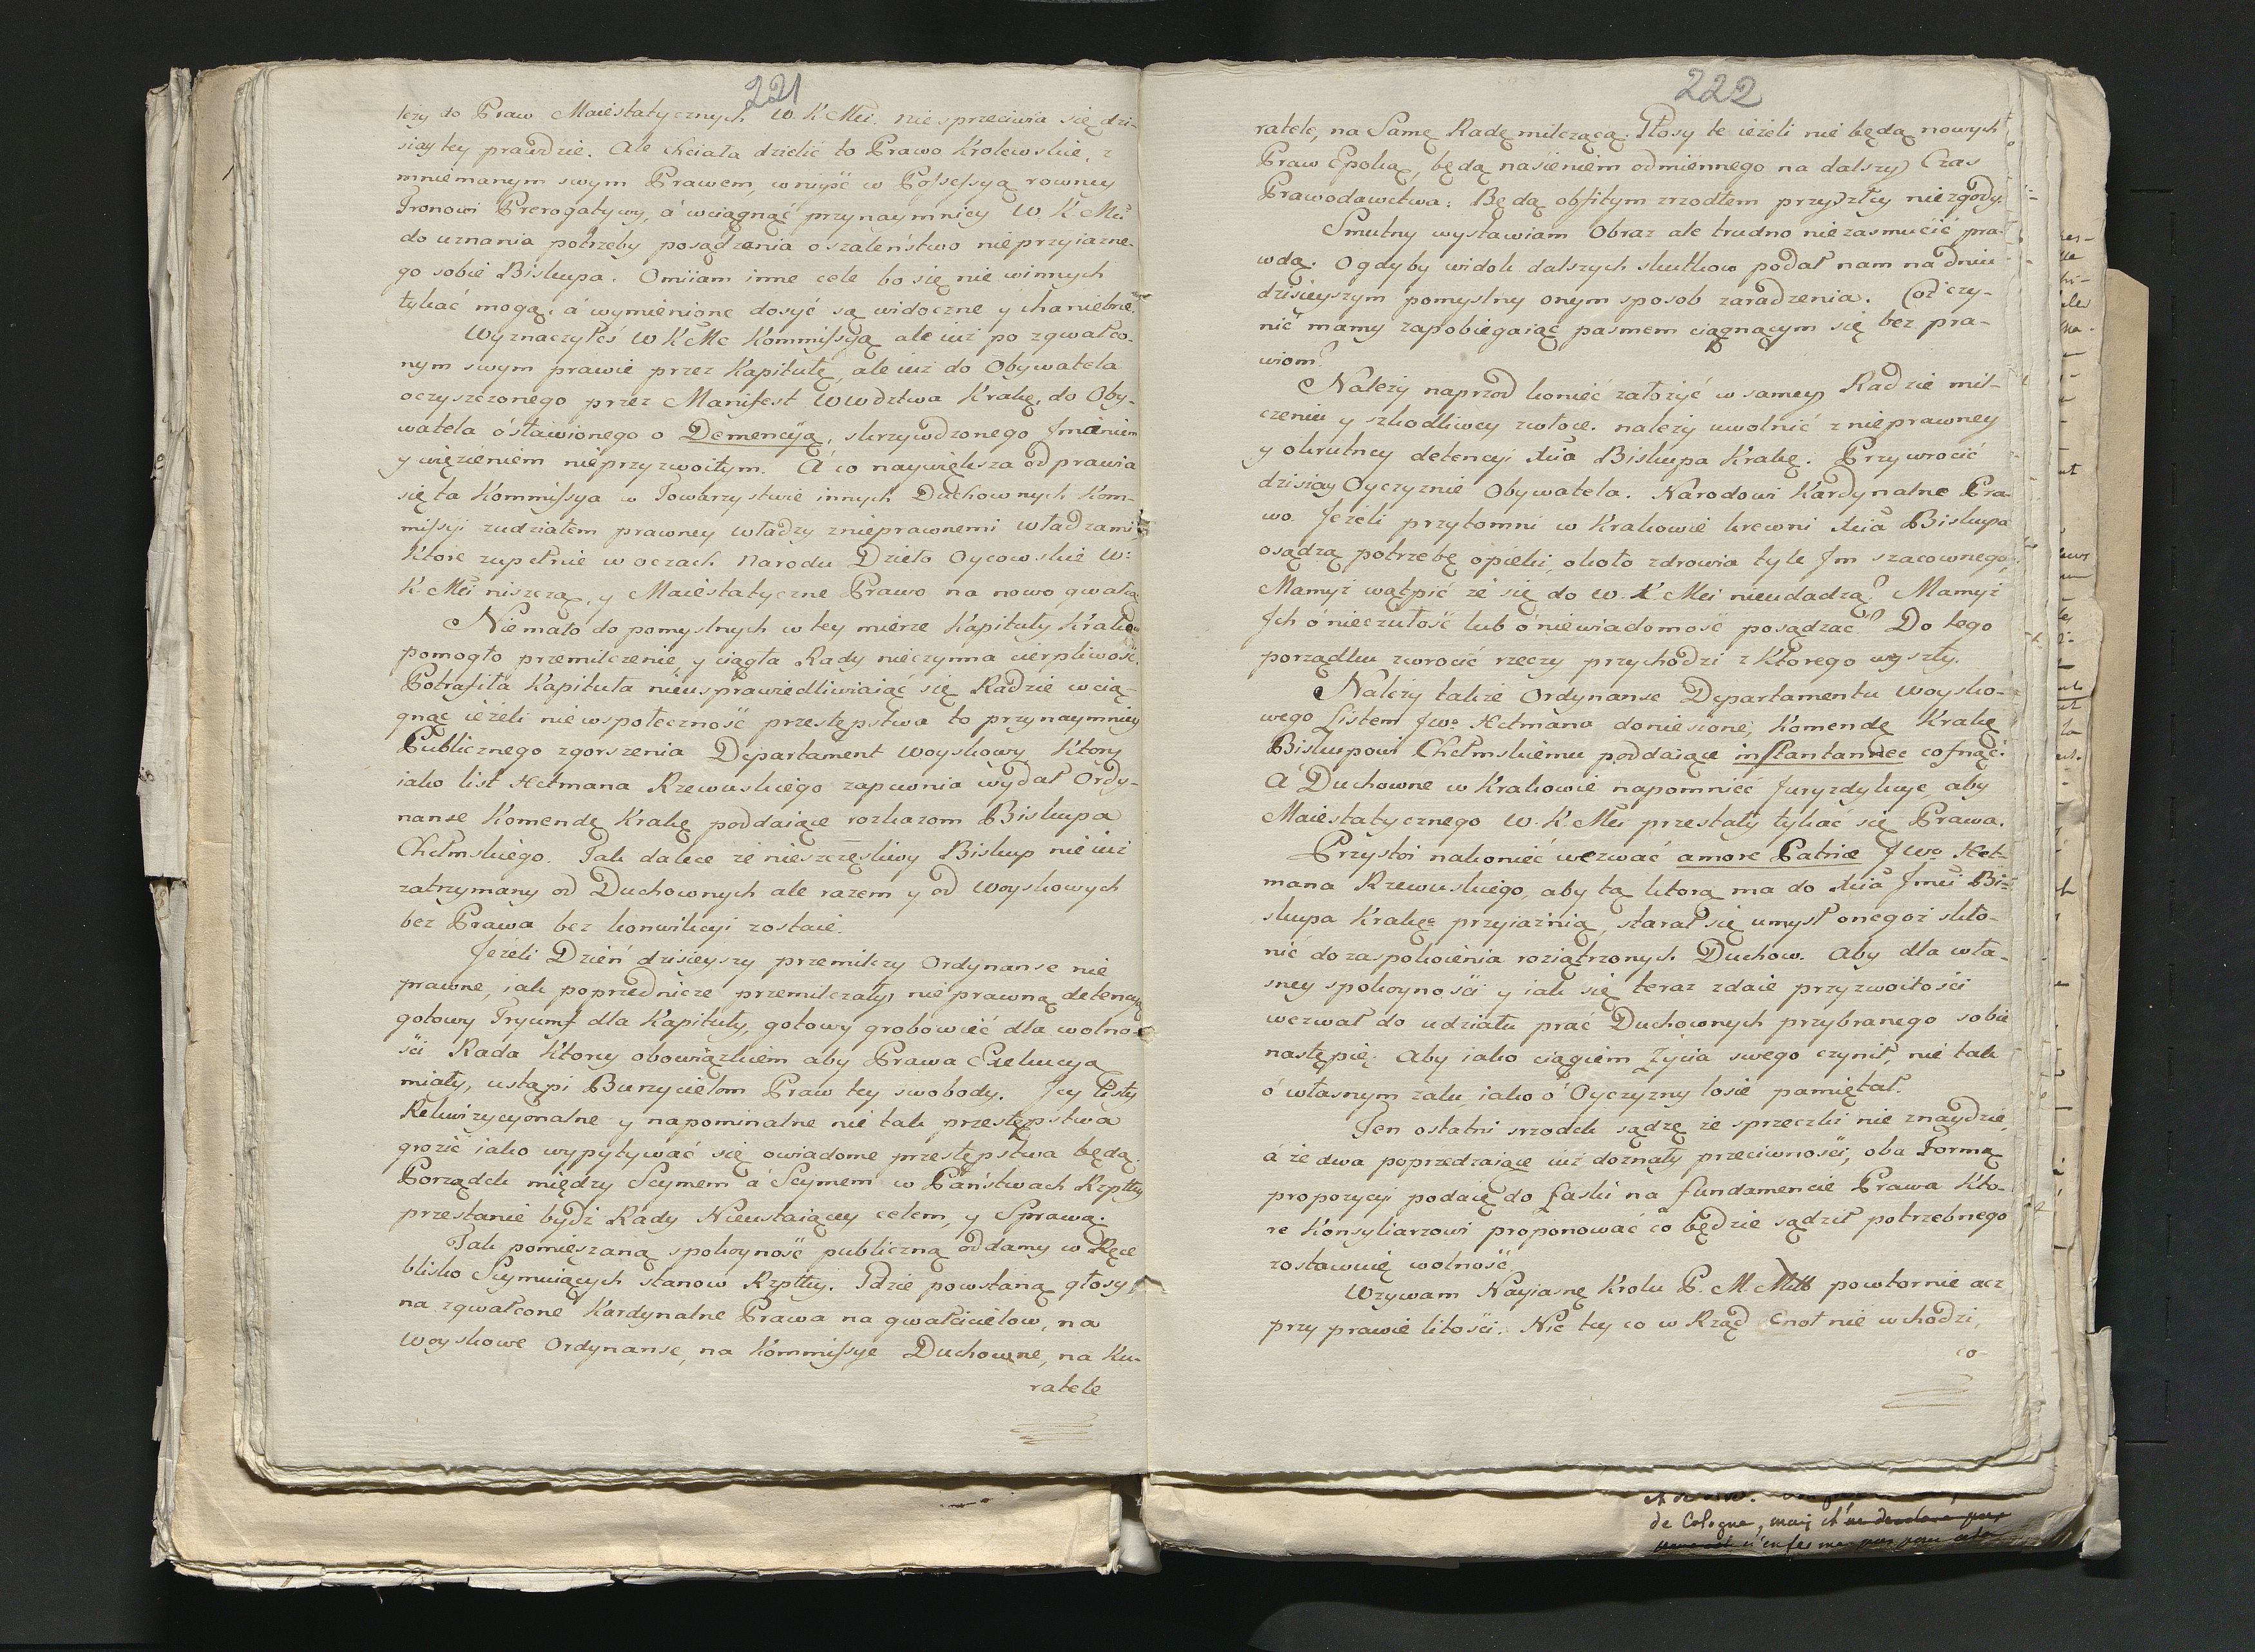 221
leży do Praw Maiestatycznych W. K. Mci. nie sprzeciwia się dzi-
siay tey prawdzie. Ale chciała dzielić to Prawo Krolewskie, z
mniemanym swym Prawem, wniyść w Possessyą rowney
Tronowi Prerogatywy, á wciągnąć przynaymniey W. K. Mć
do uznania potrzeby posądzenia o szaleństwo nieprzyiazne-
go sobie Biskupa. Omiiam inne cele bo się nie winnych
tykać mogą, á wymienione dosyć są widoczne y chaniebne.
Wyznaczyłeś W K Mć Kommissyą ale iuż po zgwałco-
nym swym prawie przez Kapitułę, ale iuż do Obywatela
oczyszczonego przez Manifest Wwdztwa Krakę, do Oby-
watela osławionego o Demencyą, skrzywdzonego Jmieniem
y więzieniem nieprzyzwoitym. Á co naywiększa odprawia
się ta Kommissya w Towarzystwie innych Duchownych Kom-
missyi zudziałem prawney władzy znieprawnemi władzami
Ktore zupełnie w oczach Narodu Dzieło Oycowskie W:
K. Mci niszczą, y Maiestatyczne Prawo na nowo gwałcą
Nie mało do pomyslnych w tey mierze Kapituły Krakow
pomogło przemilczenie, y ciągła Rady nieczynna cierpliwość.
Potrafiła Kapituła nieusprawiedliwiaiąc się Radzie wcią-
gnąc ieżeli nie wspołeczność przestępstwa to przynaymniey
Publicznego zgorszenia Departament Woyskowy Ktory
iako list Hetmana Rzewuskiego zapewnia wydał Ordy-
nanse Komendę Krakę poddaiące rozkazom Biskupa
Chełmskiego. Tak dalece że nieszczęsliwy Biskup nie iuż
zatrzymany od Duchownych ale razem y od Woyskowych
bez Prawa bez konwikcyi zostaie.
Jeżeli Dzień dzisieyszy przemilczy Ordynanse nie
prawne, iak poprzednicze przemilczały, nieprawną detencyą
gotowy Tryumf dla Kapituły, gotowy grobowiec dla wolno-
ści Rada Ktorey obowiązkiem aby Prawa Exekucyą
miały, ustąpi Burzycielom Praw tey swobody. Jey Listy
Rekwizycyonalne y napominalne nie tak przestępstwa
grozić iako wypytywać się owiadome przestępstwa będą.
Porządek między Seymem á Seymem w Państwach Rzpttey
przestanie bydź Rady Nieustaiącey celem, y Sprawą.
Tak pomięszaną spokoyność publiczną oddamy w Ręce
blisko Seymuiących stanow Rzpttey. Gdzie powstaną głosy
na zgwałcone Kardynalne Prawa na gwałcicielow, na
Woyskowe Ordynanse, na Kommissye Duchowne, na Ku-
ratele
222
ratele, na Samę Radę milczącą. Głosy te ieżeli nie będą nowych
Praw Epoką, będą nasieniem odmiennego na dalszy Czas
Prawodawctwa: Będą obfitym zrzodłem przyszłey niezgody.
Smutny wystawiam Obraz ale trudno nie zasmucić pra-
wdą. O gdyby widok dalszych skutkow podał nam na dniu
dzisieyszym pomyslny onym sposob zaradzenia. Coż czy-
nić mamy zapobiegaiąc pasmem ciągnącym się bez pra-
wiom?
Należy naprzod koniec założyć w samey Radzie mil-
czeniu y szkodliwey zwłoce. należy uwolnić z nieprawney
y okrutney detencyi Xcia Biskupa Krakę. Przywrocić
dzisiay Oyczyznie Obywatela. Narodowi Kardynalne Pra-
wo. Jeżeli przytomni w Krakowie krewni Xcia Biskupa
osądzą potrzebę opieki, około zdrowia tyle Jm szacownego,
Mamyż wątpić że się do W. K. Mci nieudadzą? Mamyż
Jch ó nieczułość lub ó niewiadomość posądzać? Do tego
porządku zwrocić rzeczy przychodzi z Ktorego wyszły.
Należy także Ordynanse Departamentu Woysko-
wego Listem JWo Hetmana doniesione, Komendę Krakę
Biskupowi Chełmskiemu poddaiące instantanee cofnąć:
Á Duchowne w Krakowie napomnieć Juryzdykcye, aby
Maiestatycznego W. K. Mci przestały tykać się Prawa.
Przystoi nakoniec wezwać amore Patriæ JWo Het-
mana Rzewuskiego, aby tą ktorą ma do Xcia Jmci Bi-
skupa Krakgo przyiaźnią, starał się umysł onegoż skło-
nić do zaspokoienia roziątrzonych Duchow. Aby dla wła-
sney spokoyności y iak się teraz zdaie przyzwoitości
wezwał do udziału prac Duchownych przybranego sobie
następcę. Aby iako ciągiem życia swego czynił, nie tak
ó własnym żalu, iako ó Oyczyzny losie pamiętał.
Ten ostatni srzodek sądzę że sprzeczki nie znaydzie,
á że dwa poprzedzaiące iuż doznały przeciwności, oba Formą
propozycyi podaię do laski na fundamencie Prawa Kto-
re Konsyliarzowi proponować co będzie sądził potrzebnego
zostawuię wolność
Wzywam Nayiasnę Krolu P. M. Mttł powtornie acz
przy prawie litości. Nic tey co w Rząd Cnot nie wchodzi,
co
de Cologne, mais